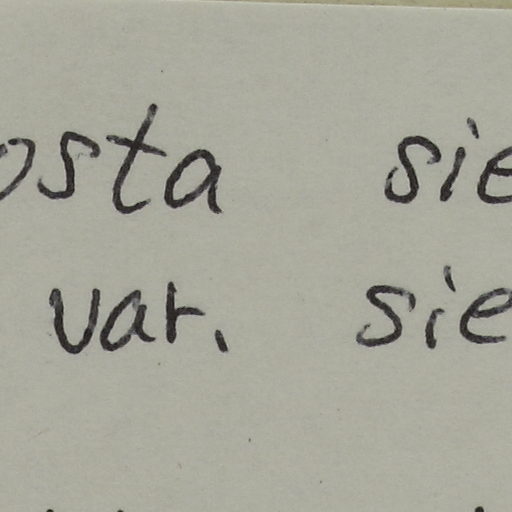 osta sie
var. sie